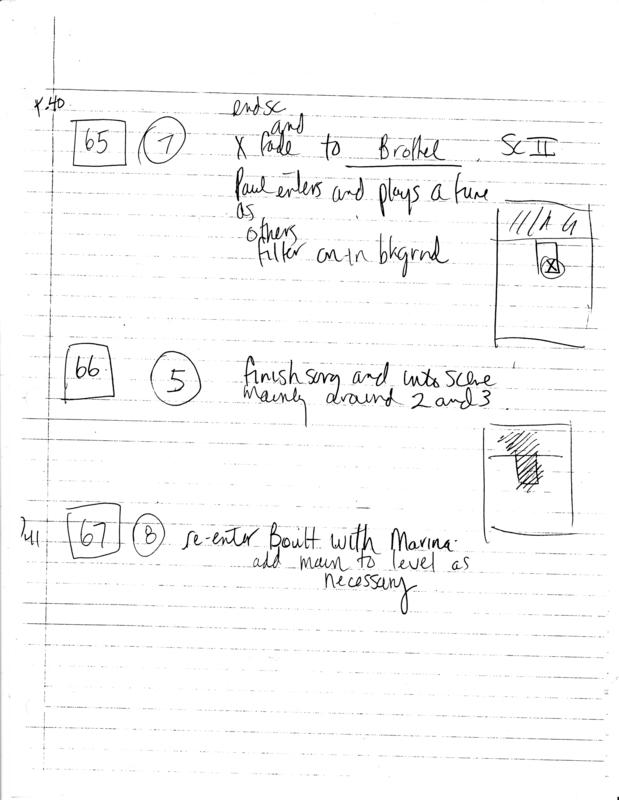 p.40
65 7 end sc
and
X fade to Brothel. Sc II
Paul enters and plays a tune
as
others
filter on in bkgrnd
H/A G
X
66 5 finish song and into scene
mainly around 2 and 3
p41 67 8 re-enter Boult with Marina.
add main to level as
necessary